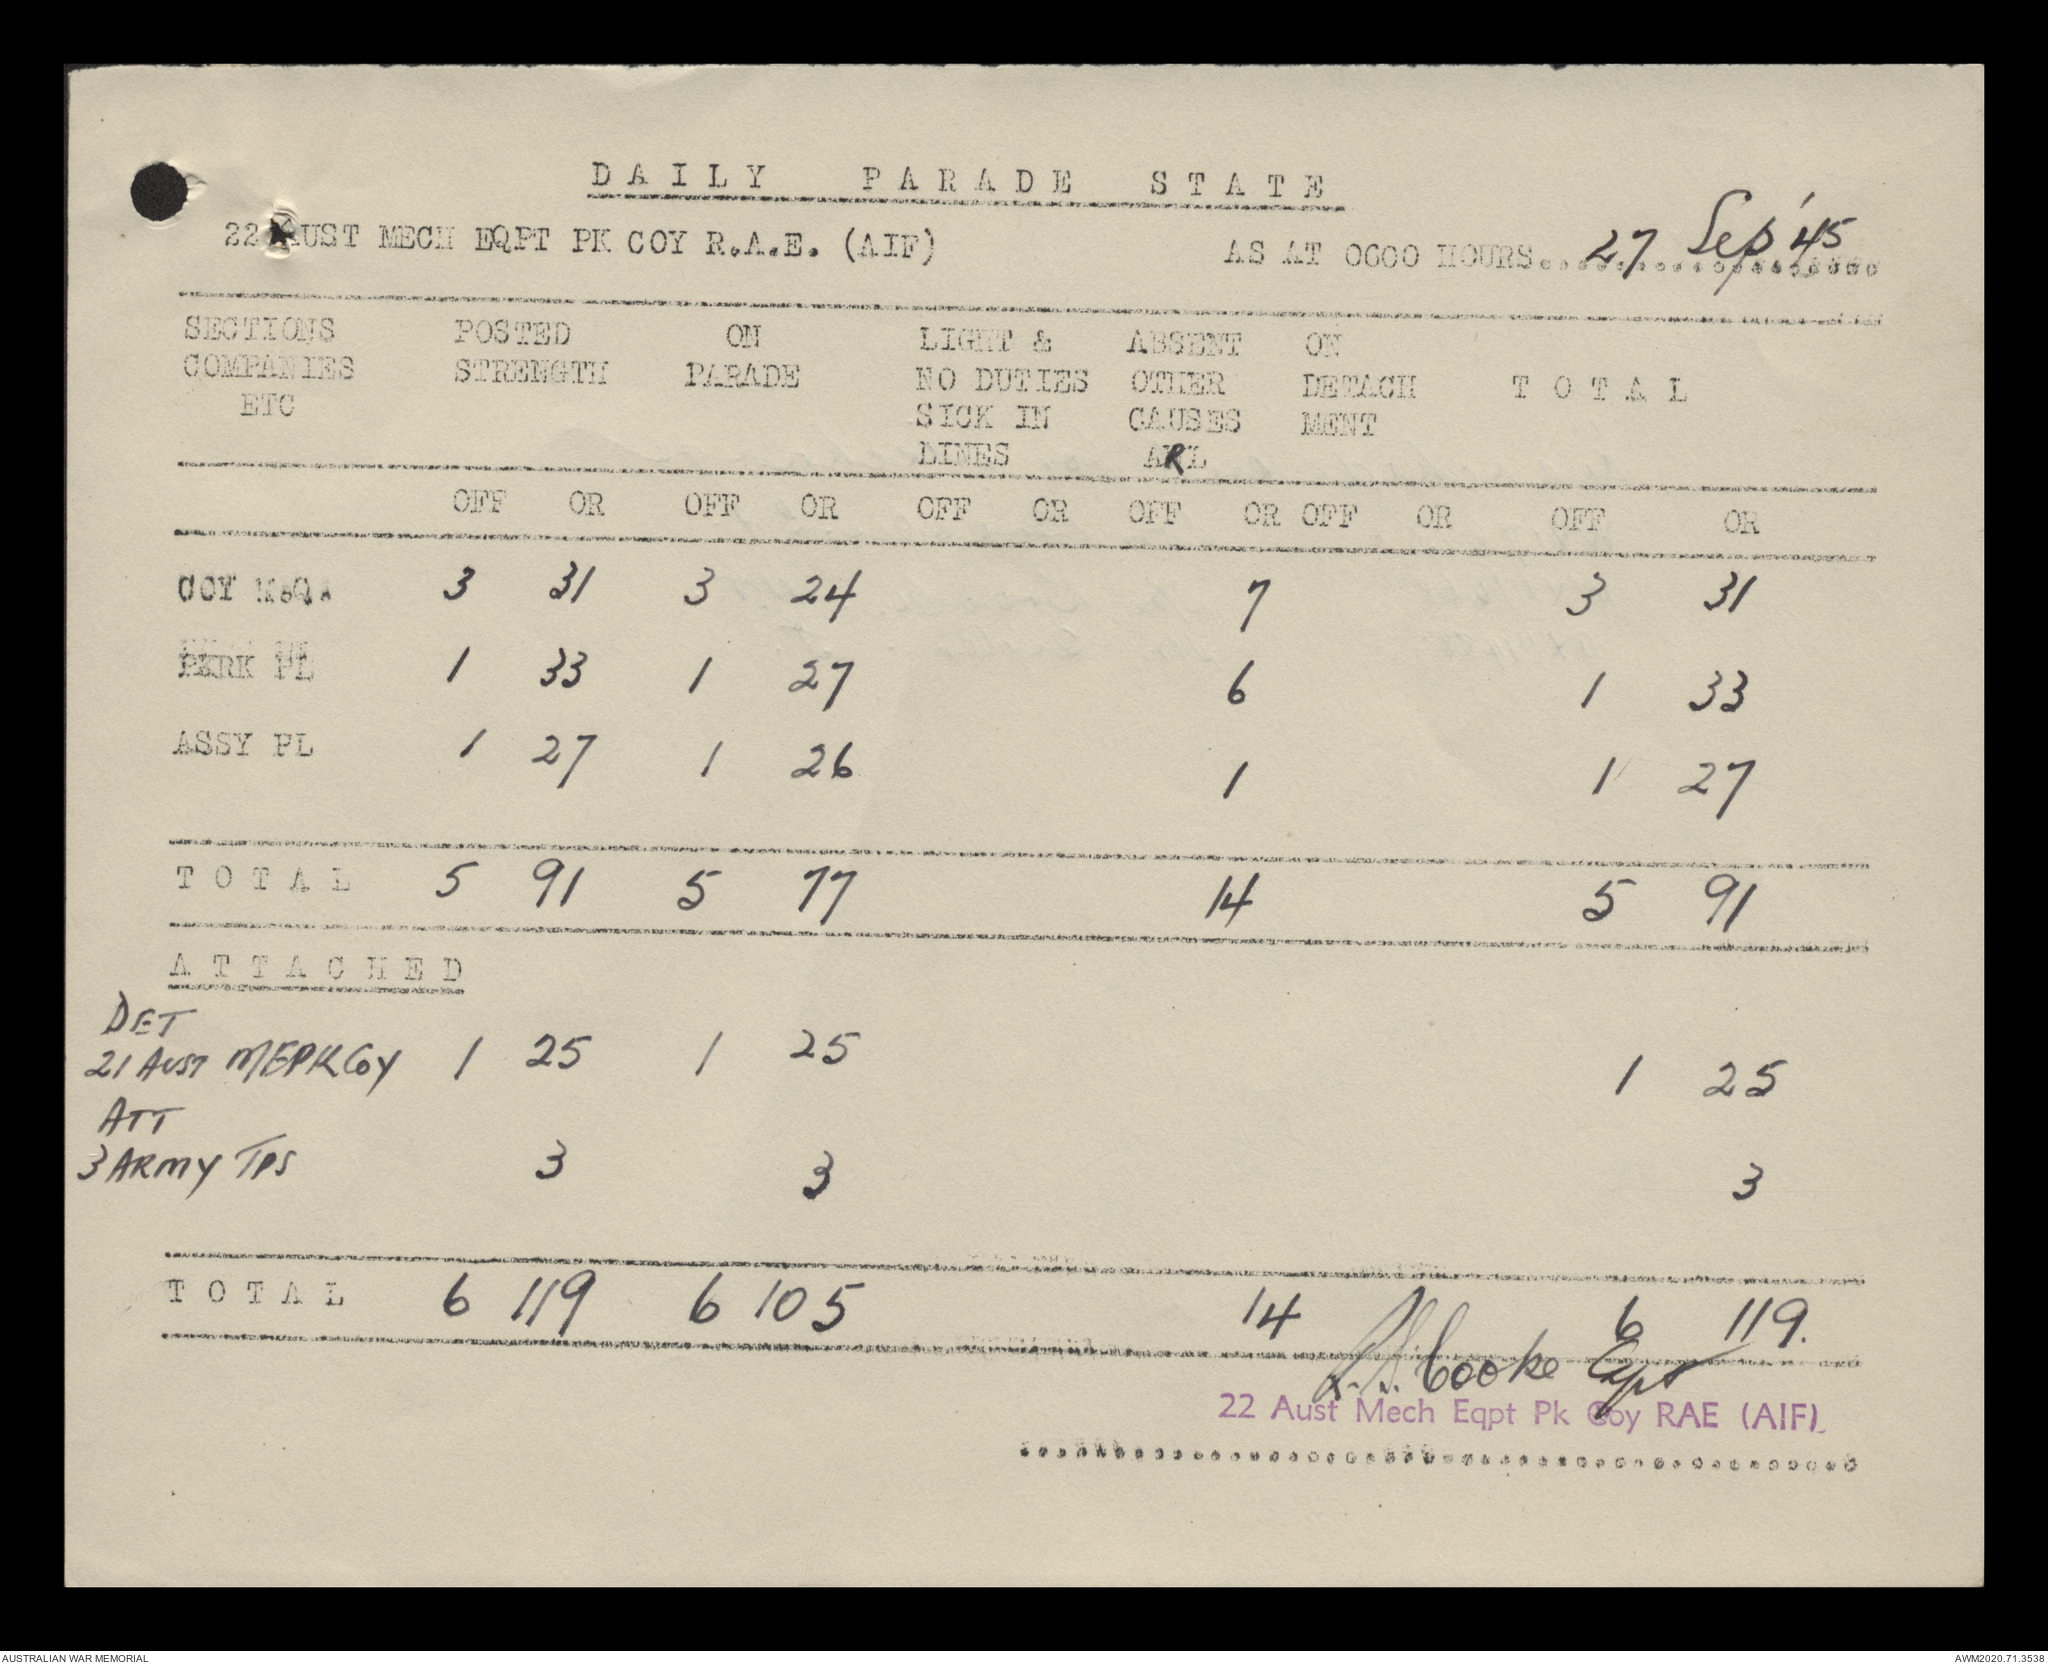 DAILY PARADE STATE
22 AUST MECH EQPT PK COY R.A.E. (AIF) AS AT 0600 HOURS. 27 Sep '45
SECTIONS POSTED ON LIGHT & ABSENT ON
COMPANIES STRENGTH PARADE NO DUTIES OTHER DETACH TOTAL
ETC SICK IN CAUSES MENT
LINES
OFF OR OFF OR OFF OR OFF OR OFF OR OFF OR
COY H.Q. 3 31 3 24 7 3 31
PARK PL 1 33 1 27 6 1 33
ASSY PL 1 27 1 26 1 1 27
TOTAL 5 91 5 77 14 5 91
ATTACHED
DET
21 AUST MEPK COY 1 25 1 25 1 25
ATT
3 ARMY TPS 3 3 3
TOTAL 6 119 6 105 14 6 119.
Cooke Capt
22 Aust Mech Eqpt Pk Coy RAE (AIF)
AUSTRALIAN WAR MEMORIAL AWM2020.71.3538